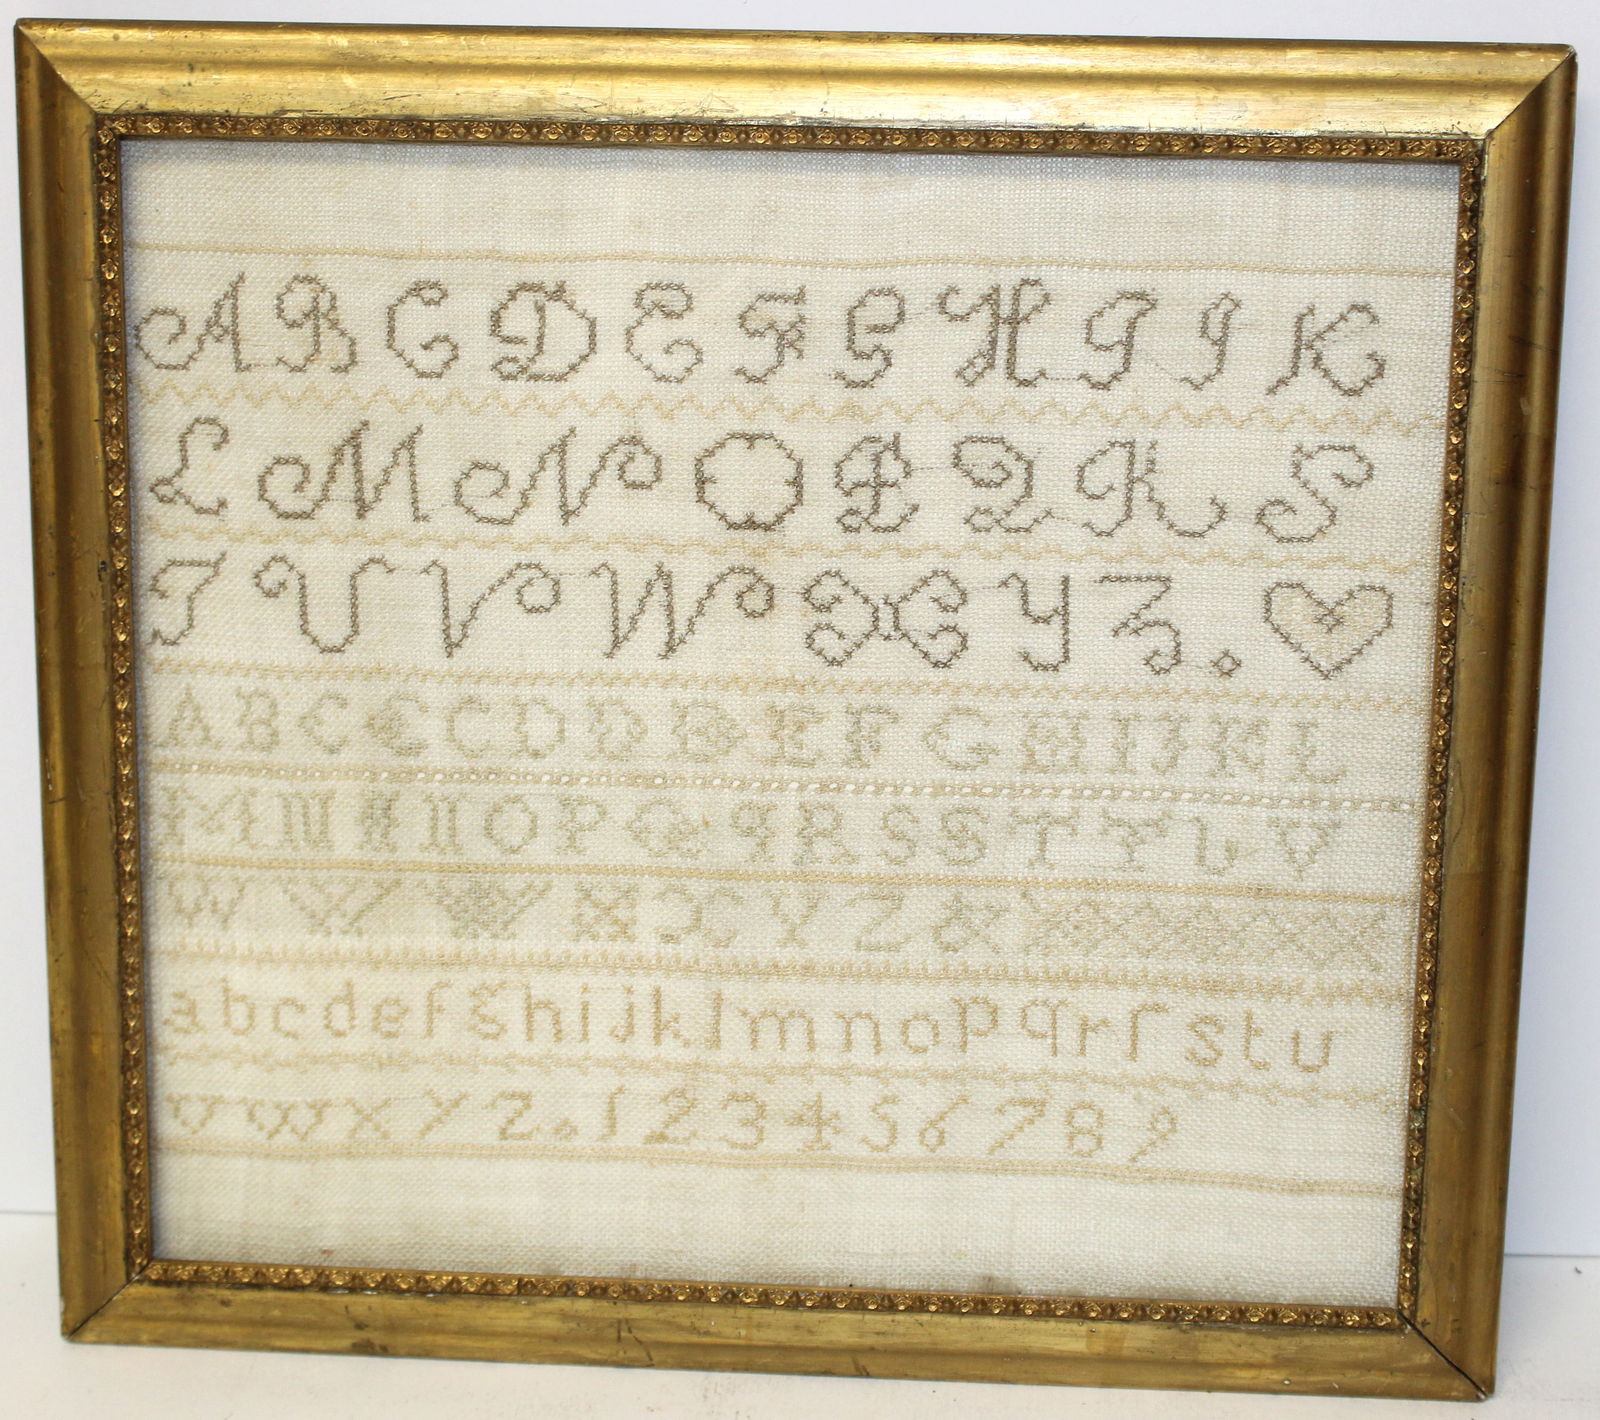 A B C D E F G H I J K
L M N O P Q R S
T U V W X Y Z . ♥
A B C C C D D D E F G H I J K L
M M N N O P Q q R S S T T U V
W W W X X Y Z &
a b c d e f g h i j k l m n o p q r ſ s t u
v w x y z . 1 2 3 4 5 6 7 8 9